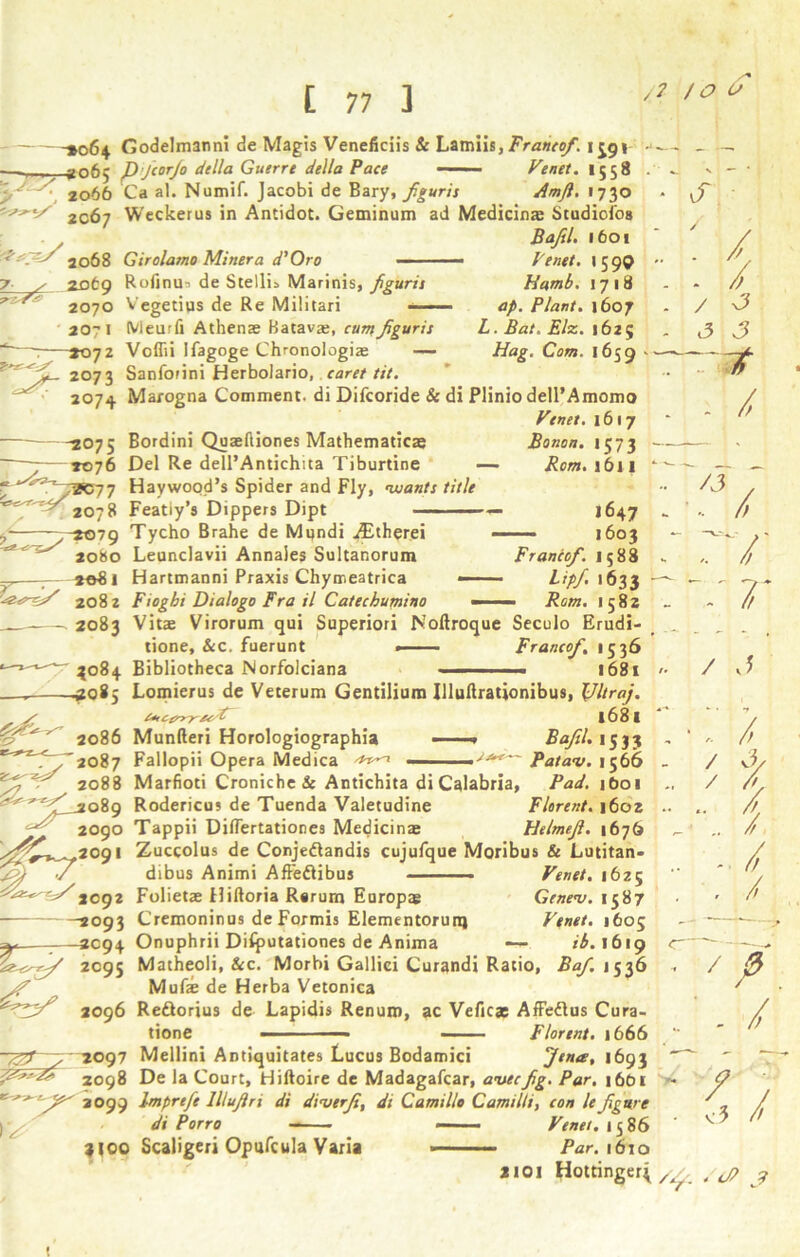 [ 77 ]
2064 Godelmanni de Magis Veneficiis & Lamiis, Francof. 1591
2065 Discorso della Guerre della Pace —— Venet. 1558
2066 Ca al. Numiſ. Jacobi de Bary, figuris Amſt. 1730
2067 Weckerus in Antidot. Geminum ad Medicinæ Studioſos
Baſil. 1601
2068 Girolamo Minera d'Oro —— Venet. 1590
2069 Roſinus de Stellis Marinis, figuris Hamb. 1718
2070 Vegetius de Re Militari —— ap. Plant. 1607
2071 Meurſi Athenæ Batavæ, cum figuris L. Bat. Elz. 1625
2072 Voſſii Iſagoge Chronologiæ — Hag. Com. 1659
2073 Sanforini Herbolario, caret tit.
2074 Marogna Comment. di Diſcoride & di Plinio dell'Amomo
Venet. 1617
2075 Bordini Quæſtiones Mathematicæ Bonon. 1573
2076 Del Re dell'Antichita Tiburtine — Rom. 1611
2077 Haywood's Spider and Fly, wants title
2078 Featly's Dippers Dipt —— 1647
2079 Tycho Brahe de Mundi Ætherei —— 1603
2080 Leunclavii Annales Sultanorum Francof. 1588
2081 Hartmanni Praxis Chymeatrica —— Lipſ. 1633
2082 Fioghi Dialogo Fra il Catechumino —— Rom. 1582
2083 Vitæ Virorum qui Superiori Noſtroque Seculo Erudi-
tione, &c. fuerunt —— Francof. 1536
2084 Bibliotheca Norfolciana —— 1681
2085 Lomierus de Veterum Gentilium Illuſtrationibus, Ultraj.
1681
2086 Munſteri Horologiographia —— Baſil. 1533
2087 Fallopii Opera Medica —— Patav. 1566
2088 Marfioti Croniche & Antichita di Calabria, Pad. 1601
2089 Rodericus de Tuenda Valetudine Florent. 1602
2090 Tappii Diſſertationes Medicinæ Helmeſt. 1676
2091 Zuccolus de Conjectandis cujuſque Moribus & Lutitan-
dibus Animi Affectibus —— Venet. 1625
2092 Folietæ Hiſtoria Rerum Europæ Genev. 1587
2093 Cremoninus de Formis Elementorum Venet. 1605
2094 Onuphrii Diſputationes de Anima — ib. 1619
2095 Matheoli, &c. Morbi Gallici Curandi Ratio, Baſ. 1536
Muſæ de Herba Vetonica
2096 Rectorius de Lapidis Renum, ac Veſicæ Affectus Cura-
tione —— —— Florent. 1666
2097 Mellini Antiquitates Lucus Bodamici Jenæ, 1693
2098 De la Court, Hiſtoire de Madagaſcar, avec fig. Par. 1661
2099 Impreſe Illuſtri di diverſi, di Camillo Camilli, con le figure
di Porro —— —— Venet. 1586
2100 Scaligeri Opuſcula Varia —— Par. 1610
2101 Hottingeri